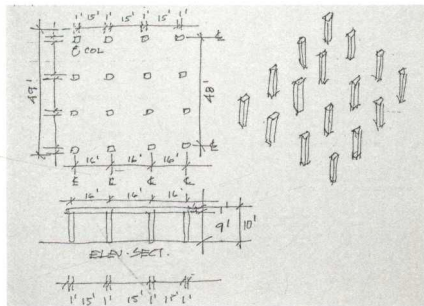 1' 15' 1' 15' 1' 15' 1'
COL
49'
48'
16' 16' 16'
16' 16' 16'
1'
9'
10'
ELEV. SECT.
1' 15' 1' 15' 1' 15' 1'